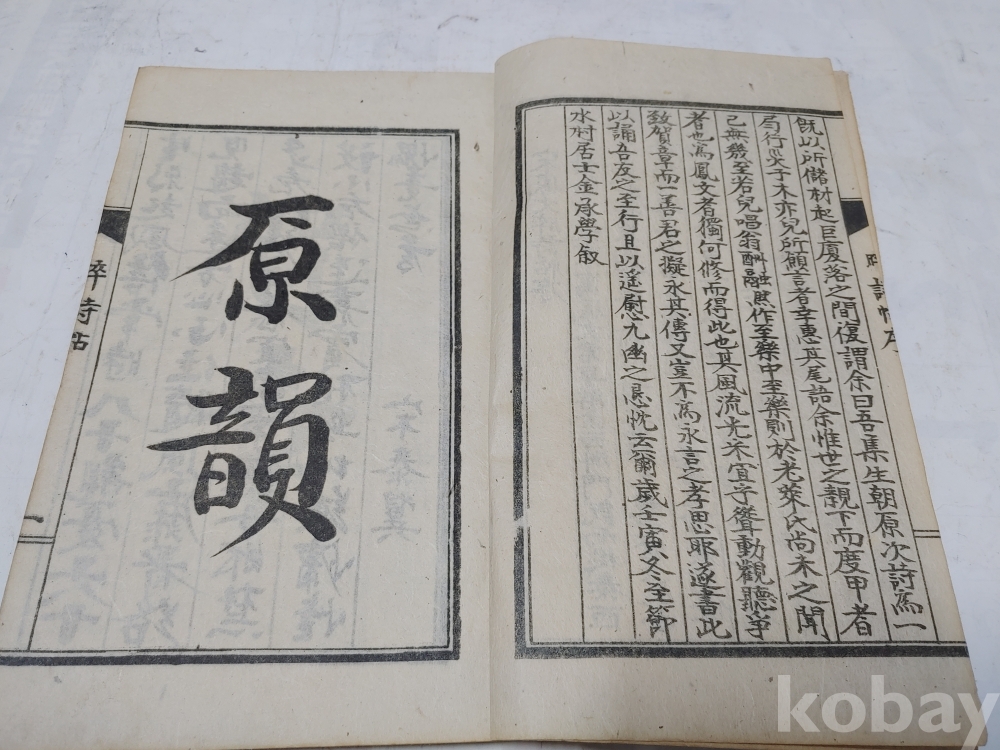 既以所儲材起巨廈落之間復謂余曰吾集生朝原次詩寫一
局行災子木亦兒所願言者幸惠其尾語余惟世之親下而度甲者
已無幾至若兒唱翁酬融然作至樂中至樂則於老萊氏尚未之聞
者也寫鳳文者獨何修而得此也其風流光采宜乎聳動觀聽爭
致賀章而一善君之擬永其傳又豈不爲永言之孝思耶遂書此
以誦吾友之至行且以遙慰九幽之悲忱云爾歲壬寅冬至節
水村居士金承學叙
原
韻
晬詩帖
一
kobay